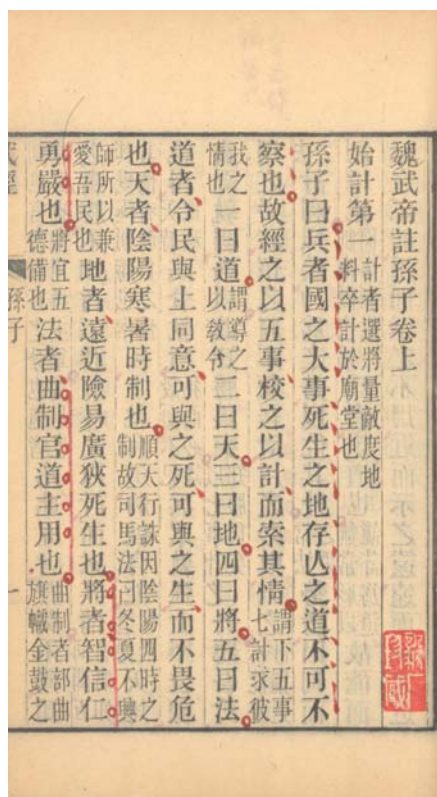 魏武帝註孫子卷上
始計第一計者選將量敵度地料卒計於廟堂也
孫子曰兵者國之大事死生之地存亾之道不可不
察也故經之以五事校之以計而索其情謂下五事七計求彼
我之情也一曰道謂導之以敎令二曰天三曰地四曰將五曰法
道者令民與上同意可與之死可與之生而不畏危
也天者陰陽寒暑時制也順天行誅因陰陽四時之制故司馬法曰冬夏不興
師所以兼愛吾民也地者遠近險易廣狹死生也將者智信仁
勇嚴也將宜五德備也法者曲制官道主用也曲制者部曲旗幟金鼓之
孫子 一